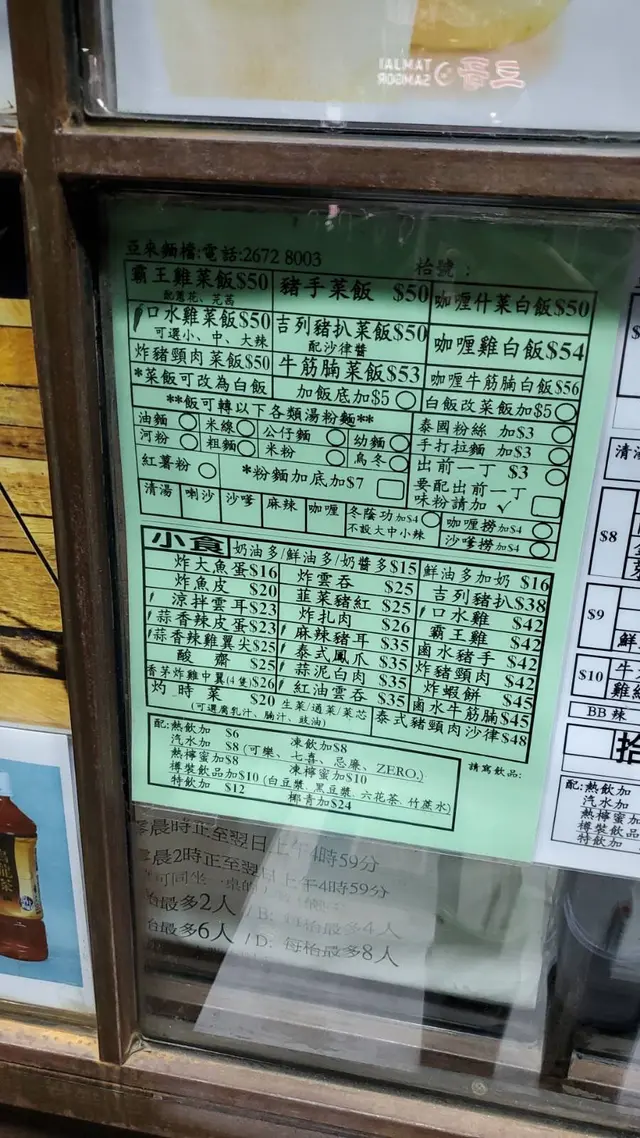 豆來麵檔:電話:2672 8003 枱號:
霸王雞菜飯$50 豬手菜飯 $50 咖喱什菜白飯$50
配蔥花、芫茜
口水雞菜飯$50 吉列豬扒菜飯$50 咖喱雞白飯$54
可選小、中、大辣 配沙律醬
炸豬頸肉菜飯$50 牛筋腩菜飯$53 咖喱牛筋腩白飯$56
*菜飯可改為白飯 加飯底加$5 白飯改菜飯加$5
**飯可轉以下各類湯粉麵**
油麵 米線 公仔麵 幼麵 泰國粉絲 加$3
河粉 粗麵 米粉 烏冬 手打拉麵 加$3
紅薯粉 *粉麵加底加$7 出前一丁 $3
要配出前一丁
味粉請加 ✓
清湯 喇沙 沙嗲 麻辣 咖喱 冬蔭功加$4 咖喱撈加$4
不設大中小辣 沙嗲撈加$4
小食 奶油多/鮮油多/奶醬多$15 鮮油多加奶 $16
炸大魚蛋$16 炸雲吞 $25 吉列豬扒$38
炸魚皮 $20 韮菜豬紅 $25 口水雞 $42
涼拌雲耳$23 炸扎肉 $26 霸王雞 $42
蒜香辣皮蛋$23 麻辣豬耳 $35 鹵水豬手 $42
蒜香辣雞翼尖$25 泰式鳳爪 $35 炸豬頸肉 $42
酸齋 $25 蒜泥白肉 $35 炸蝦餅 $45
香茅炸雞中翼(4隻)$26 紅油雲吞 $35 鹵水牛筋腩$45
灼時菜 $20 生菜/通菜/菜芯 泰式豬頸肉沙律$48
(可選腐乳汁、腩汁、豉油)
配:熱飲加 $6 凍飲加$8 請寫飲品:
汽水加 $8 (可樂、七喜、忌廉、ZERO,)
熱檸蜜加$8 凍檸蜜加$10
樽裝飲品加$10 (白豆漿、黑豆漿、六花茶、竹蔗水)
特飲加 $12 椰青加$24
晨時正至翌日上午4時59分
晨2時正至翌日上午4時59分
可同坐一桌的
最多2人 / B: 每枱最多4人
枱最多6人 / D: 每枱最多8人
$8
$9
$10
BB辣
配:熱飲加
汽水加
熱檸蜜加
樽裝飲品加
特飲加